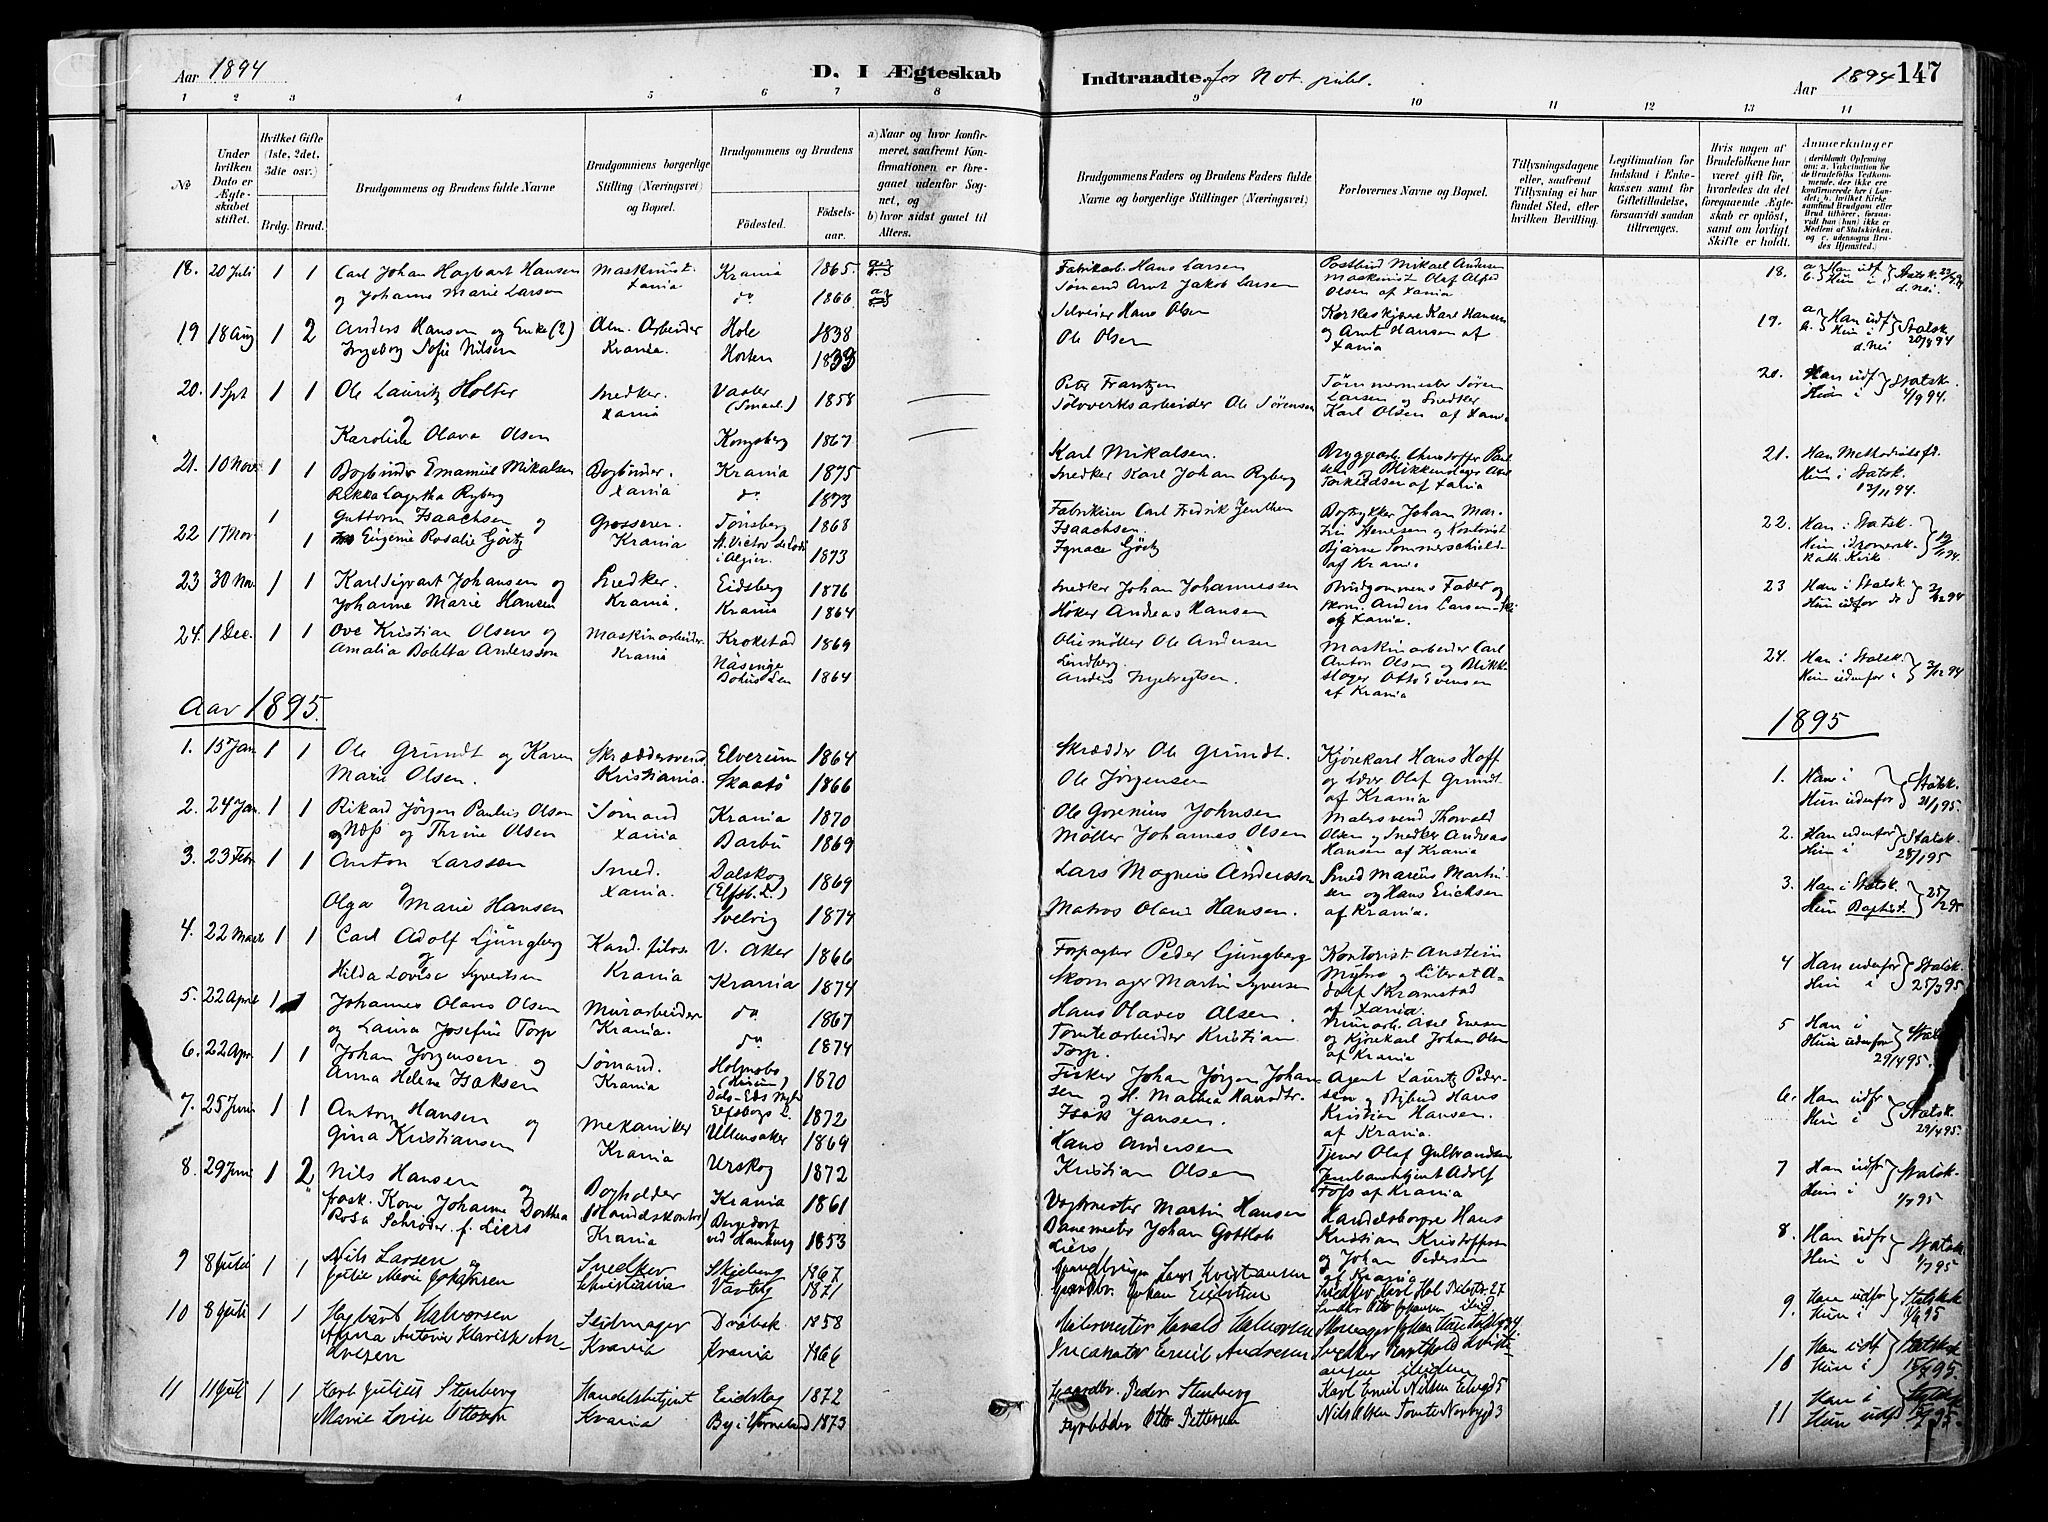 Aar 1894
D. I Ægteskab
Indtraadte for Not. publ.
Aar 1894
147
1 2 3 4 5 6 7 8 9 10 11 12 13 14
№
Under hvilken Dato er Ægteskabet stiftet.
Hvilket Gifte (1ste, 2det, 3die osv.)
Brdg. Brud.
Brudgommens og Brudens fulde Navne
Brudgommens borgerlige Stilling (Næringsvei) og Bopæl.
Brudgommens og Brudens
Fødested. Fødsels-aar.
a) Naar og hvor konfirmeret, saafremt Konfirmationen er foregaaet udenfor Sognet, og
b) hvor sidst gaaet til Alters.
Brudgommens Faders og Brudens Faders fulde Navne og borgerlige Stillinger (Næringsvei)
Forlovernes Navne og Bopæl.
Tillysningsdagene eller, saafremt Tillysning ei har fundet Sted, efter hvilken Bevilling.
Legitimation for Indskud i Enkekassen samt for Giftetilladelse, forsaavidt saadan tiltrænges.
Hvis nogen af Brudefolkene har været gift før, hvorledes da det foregaaende Ægteskab er opløst, samt om lovligt Skifte er holdt.
Anmerkninger
18. 20 Juli 1 1 Carl Johan Hagbart Hansen Maskinist. Krania 1865. Fabrikarb. Hans Larsen Postbud Mikael Andersen 18. a. Han udf. Statsk.
og Johanne Marie Larsen Xania do 1866 Sømand Arnt Jakob Larsen Maskinist Olaf Alfred b. Hun i d. nei.
Olsen af Xania
19 18 Aug 1 2 Anders Hansen og Enke (2) Alm. Arbeider Hole 1838 Selveier Hans Olsen Karl Hansen 19. a. Han udf. Statsk.
Ingeborg Sofie Nilsen Krania. Horten 1833 Ole Olsen og Arnt Hansen af Xania Hun i d. nei 20/8 94
20. 1 Sept 1 1 Ole Lauritz Holter Snedker. Vaaler (Smaal.) 1858 Peter Frantzen Tømmermester Søren 20. Han udf. Statsk.
og Xania Sølvverksarbeider Ole Sørensen Larsen og Snedker Hun i 4/9 94.
Karoline Olava Olsen Kongsberg 1867 Karl Olsen af Xania
21. 10 Nov. 1 1 Bogbinder Emanuel Mikalsen Bogbinder. Krania 1875 Karl Mikalsen. 21. Han Methodistsfd.
Rikka Lagertha Ryberg Xania. do 1873 Snedker Karl Johan Ryberg af Xania Hun i Statsk. 13/11 94.
22 17 Nov. 1 Guttorm Isaachsen og Grosserer. Tønsberg 1868 Fabrikeier Carl Fredrik Isaachsen. Bogtrykker Johan 22. Han i Statsk.
1 Eugenie Rosalie Götz Krania St. Victor i Algier. 1873 Ignace Götz Bjarne Sommerschield af Krania Hun i romersk. Kath. Kirke
23 30 Nov. 1 1 Karl Sigvart Johansen og Snedker. Eidsberg 1876 Snedker Johan Johannessen Brudgommens Fader og 23 Han i Statsk.
Johanne Marie Hansen Krania. Krania 1864 Høker Andreas Hansen Skom. Anders Larsen af Xania. Hun udfor do
24. 1 Dec. 1 1 Ove Kristian Olsen og Maskinarbeider. Krokstad 1869 Oliemøller Ole Andersen Lindberg. Maskinarbeider Carl 24. Han i Statsk.
Amalia Boletta Andersson Krania Näsinge Bohus Len 1864 Anders Anton Olsen og Blikkslager Otto Evensen af Krania Hun udenfor
Aar 1895.
1895
1. 15 Jan. 1 1 Ole Grundt og Karen Skræddersvend. Elverum 1864 Skrædder Ole Grundt. Kjørekarl Hans Hoff 1. Han i Statsk.
Marie Olsen. Kristiania. Skaatø 1866 Ole Jørgensen og Olaf Grundt af Krania Hun udenfor 21/1 95.
2. 24 Jan. 1 1 Rikard Jörgen Paulus Olsen Sømand Krania 1870 Ole Gorenius Johnsen Malersvend Thorvald 2. Han udenfor Statsk.
Næss og Thrine Olsen Xania Barbu 1869 Møller Johannes Olsen Olsen og Snedker Andreas Hansen af Krania Hun i 28/1 95
3. 23 Febr. 1 1 Anton Larsson Smed. Dalskog (Elfsb. L.) 1869 Lars Magnus Andersson Smed Marius Martinsen 3. Han i Statsk.
og Olga Marie Hansen Xania. Svelvig 1874 Matros Olaus Hansen. og Hans Ericksen af Krania. Hun Baptist. 25/2 95
4. 22 Marts 1 1 Carl Adolf Ljungberg Kand. filos. V. Aker 1866 Forpagter Peder Ljungberg Kontorist Anstein 4 Han udenfor Statsk.
og Hilda Lovise Syvertsen Krania Krania 1874 Skomager Martin Syversen og Literat Adolf Skramstad af Xania. Hun i 25/3 95
5. 22 April 1 1 Johannes Olaus Olsen Murarbeider do 1867 Hans Olaves Olsen. Murarb. Axel Evensen 5 Han i Statsk.
og Laura Josefine Torp Krania. do 1874 Tomtearbeider Kristian Torp. og Kjørekarl Johan Olsen af Krania Hun udenfor 29/4 95.
6. 22 Apr. 1 1 Johan Jørgensen og Sømand. Holmsbo (Hurum) 1870 Fisker Johan Jørgen Johansen og H. Mathea Hansdtr. Agent Lauritz Pedersen 6. Han udfr Statsk.
Anna Helene Isaksen Krania Dals-Eds Elfsborgs L. 1872 Isak Jansen. og Hans Kristian Hansen. af Krania. Hun i 29/4 95.
7. 25 Juni 1 1 Anton Hansen og Mekaniker Ullensaker 1869 Hans Andersen Tjener Olaf Gulbrandsen 7 Han udfr Statsk.
Gina Kristiansen Krania Urskog 1872 Kristian Olsen Jernbanebetjent Adolf Foss af Krania Hun i 1/7 95
8. 29 Juni 1 2 Nils Hansen og Bogholder Krania 1861 Vogtmester Martin Hansen Handelsborger Hans 8. Han udfr Statsk.
frask. Kone Johanne Dorthea (Handelskontor) Bergedorf 1853 Banemester Johan Gottlob Kristian Kristoffersen Hun i 1/7 95
Rosa Schröder f. Liers Krania ved Hamburg Liers og Johan Pedersen af Krania
9 8 Juli 1 1 Nils Larsen og Snedker Skjeberg 1867 Gaardbruger Lars Kristiansen Snedker Karl Hol 27 9. Han udfr Statsk.
Julie Marie Johansen Christiania Varteig 1871 Gaardbr. Johan Snedker Otto Johansen ibid Hun i
10 8 Juli 1 1 Hagbart Halvorsen Seilmager Drøbak 1858 Malermester Harald Halvorsen Skomager Johan 10 Han udf Statsk
Anna Antonie Klavine Andresen Krania Krania 1866 Emil Andresen Snedker Berthold Kristiansen ibidem Hun i
11 11 Juli 1 1 Karl Julius Stenberg Handelsbetjent Eidskog 1872 Gaardbr. Peder Stenberg Karl Emil Nilsen 11 Han i Statsk
Marie Lovise Ottosen Krania By i Vermeland 1873 Fyrbøder Otto Pettersen Nils Olsen Tomte Norbyg 3 Hun udf